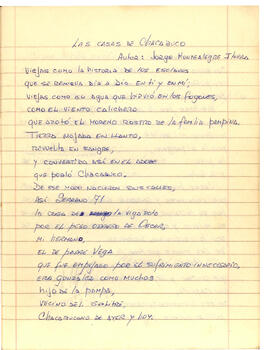 LAS CASAS DE CHACABUCO
Autor: Jorge Montealegre Iturra
Viejas como la historia de los esclavos
que se renueva día a día en ti y en mí;
viejas como el agua que hirvió en los fogones,
como el viento calichero
que azotó el moreno rostro de la familia pampina.
Tierra mojada en llanto,
revuelta en sangre,
y convertida así en el adobe
que pobló Chacabuco.
De ese modo nacieron sus calles,
así Serrano 71
la casa de la viga
por el peso de Oscar,
mi hermano,
el de padre Vega
que fue empujado por el sufrimiento innecesario,
era González como muchos
hijo de la pampa,
vecino del
Chacabucano de ayer y hoy.